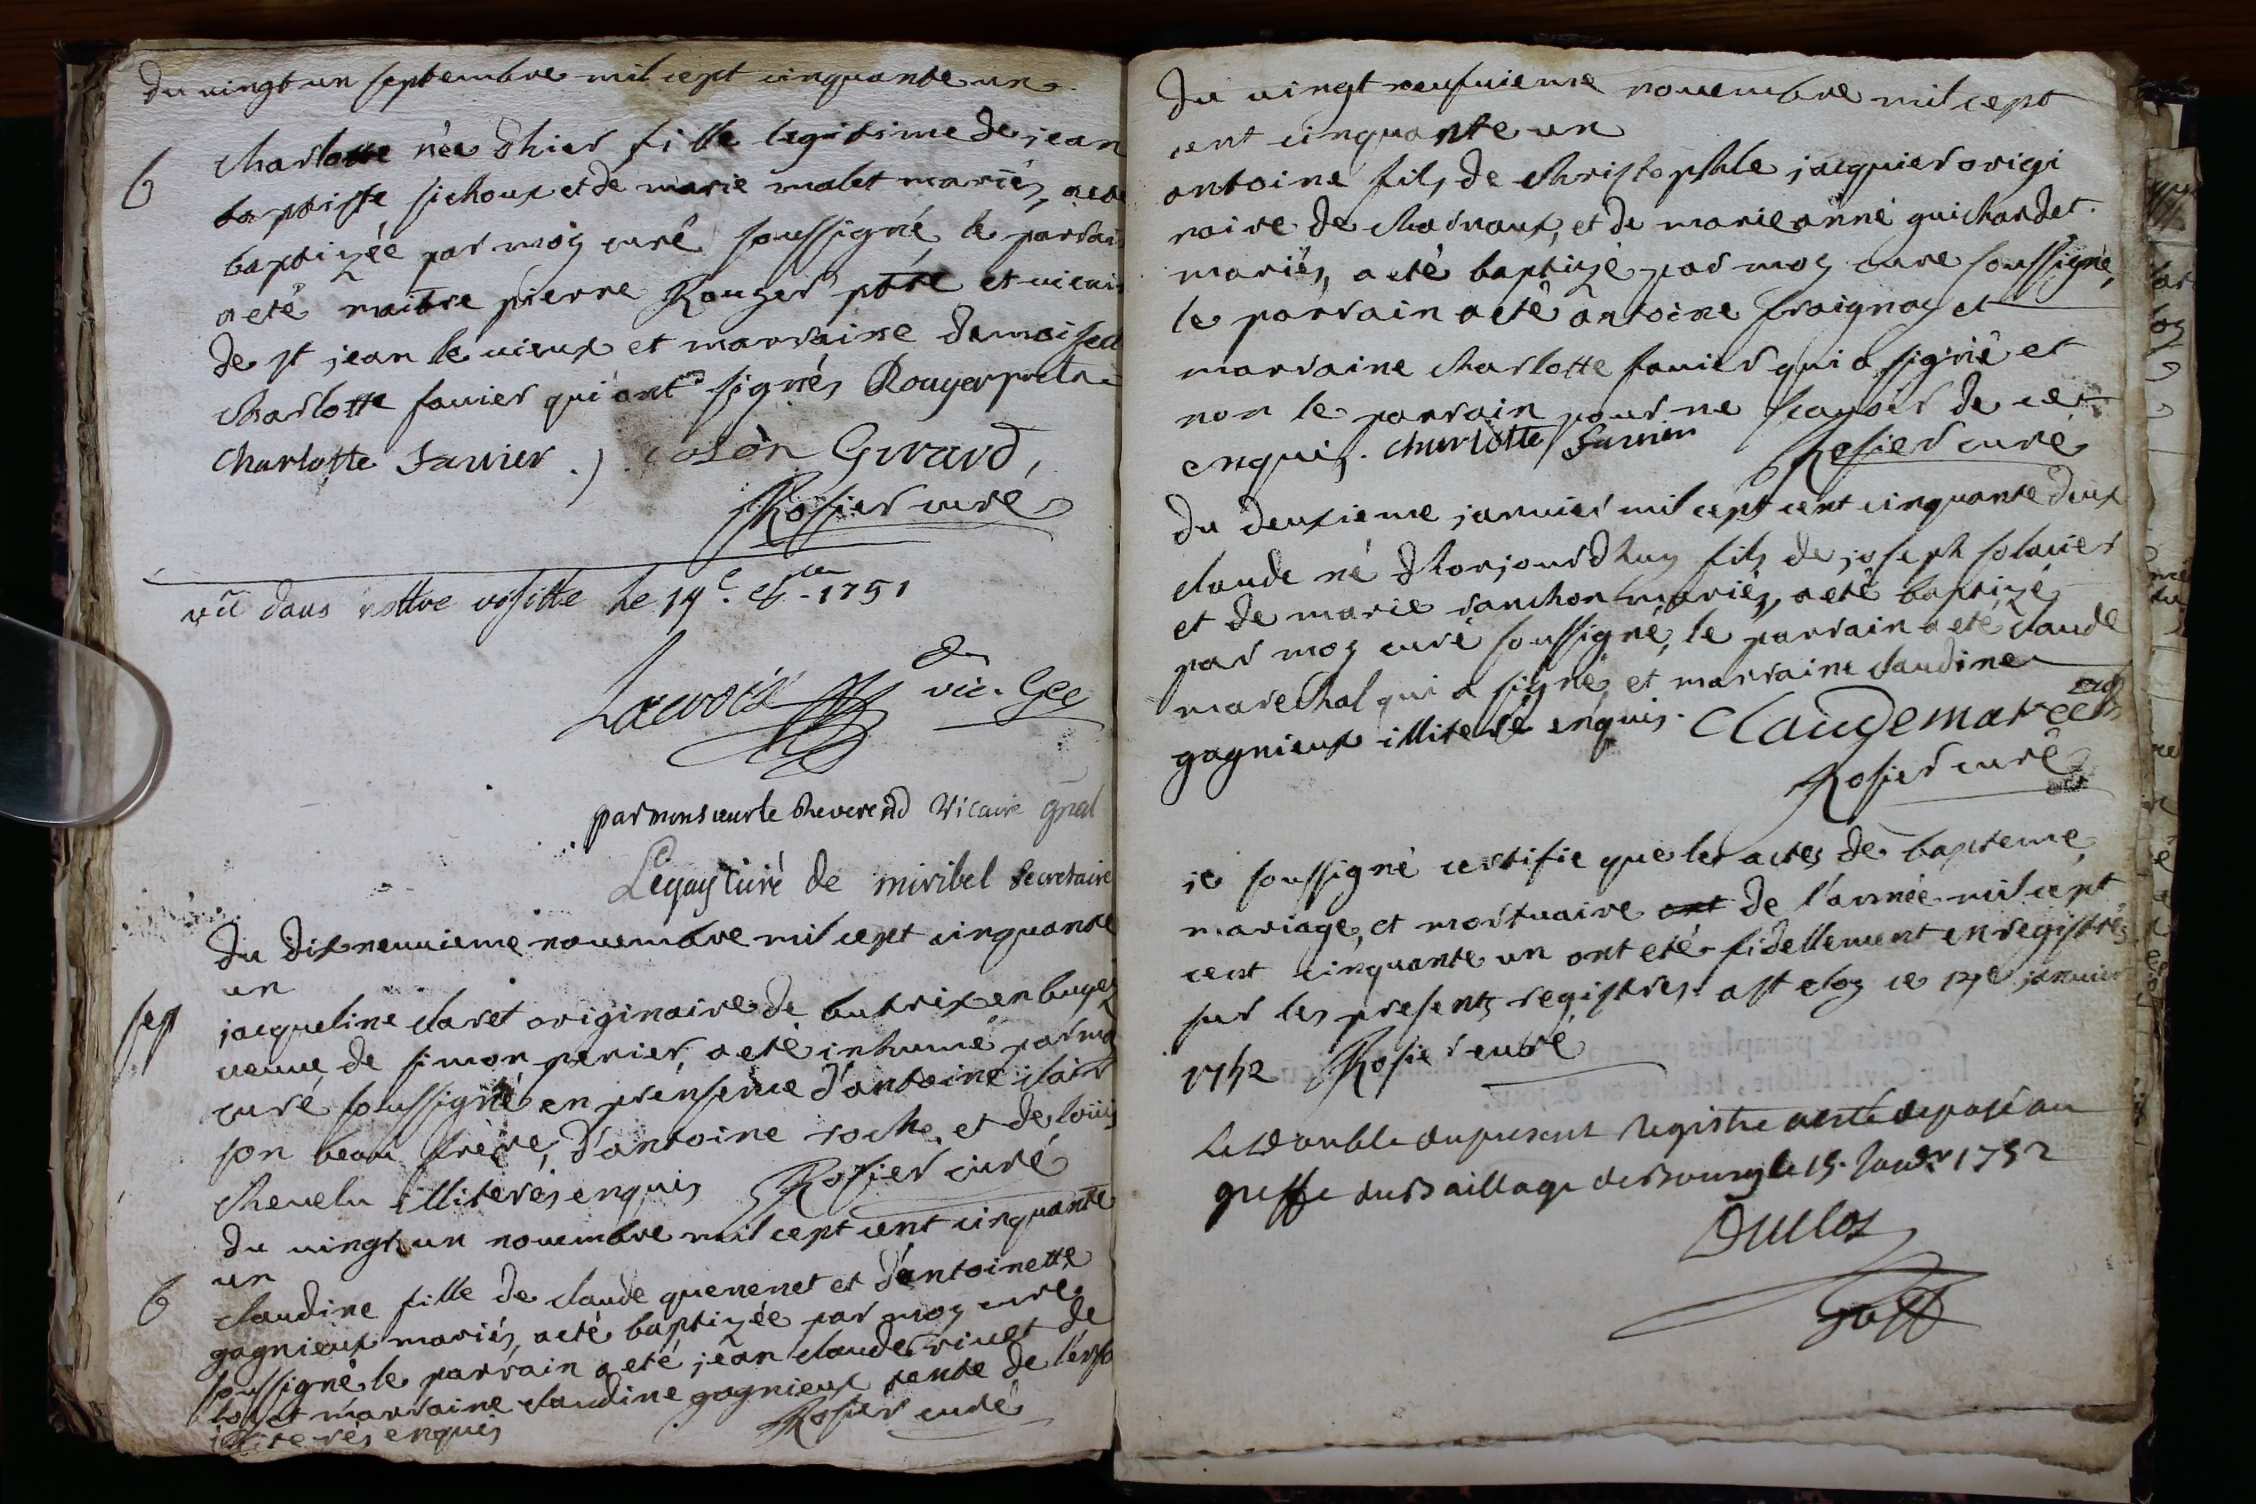 du vingt un septembre mil cept cinquante un
b
charlotte née d'hier fille legitime de jean
baptiste sichoux et de marie malet mariés, aeté
baptizée par moy curé soussigné, le parrain
a eté maitre pierre Rouger pbre et vicaire
de st jean le vieux et marraine demoiselle
charlotte favier qui ont signés Rouger
charlotte Favier Girard,
Rosier curé
vû dans nottre visitte le 14e 1751
Lacroix vic. Gee
par monsieur le Reverend Vicaire gnal
Legay Curé de miribel Secretaire
du dix neuvieme novembre mil cept cinquante
un
sep
jacqueline claret originaire de en bugey
veuve de simon perier a eté inhumé par moy
curé soussigné en presence d'antoine clair
son beau frere, d'antoine roche et de loüis
chevelu illiterés enquis Rosier curé
du vingt un novembre mil cept cent cinquante
un
b
claudine fille de claude quenenet et d'antoinette
gagnieux mariés, a eté baptizée par moy curé
soussigné le parrain a eté jean claude rivet de
et marraine claudine gagnieux tente de
illiterés enquis Rosier curé
du vingt neufvieme novembre mil cept
cent cinquante un
antoine fils de christophle jacquier origi
naire de chagnaux, et de marieanne guichardet
mariés, a eté baptizé par moy cure soussigné,
le parrain a eté antoine fraignay et
marraine charlotte favier qui a signé et
non le parrain pour ne scavoir de ce
enquis. charlotte Favier Rosier curé
du deuxieme janvier mil cept cent cinquante deux
claude né d'horjourdhuy fils de joseph solavier
et de marie ranchon mariés, a eté baptizé
par moy curé soussigné, le parrain a eté claude
marechal qui a signé, et marraine claudine
gagnieux illiteré enquis. Claude
Rosier curé
je soussigné certifie que les actes de bapteme
mariage, et mortuaire ont de l'année mil cept
cent cinquante un ont eté fidellement enregistrés
sur les presents registres. ce janvier
1752 Rosier curé
le double du present registre aesté deposé au
greffe du Baillage de Bourg le 15. Janvr 1752
Duclos
Geff